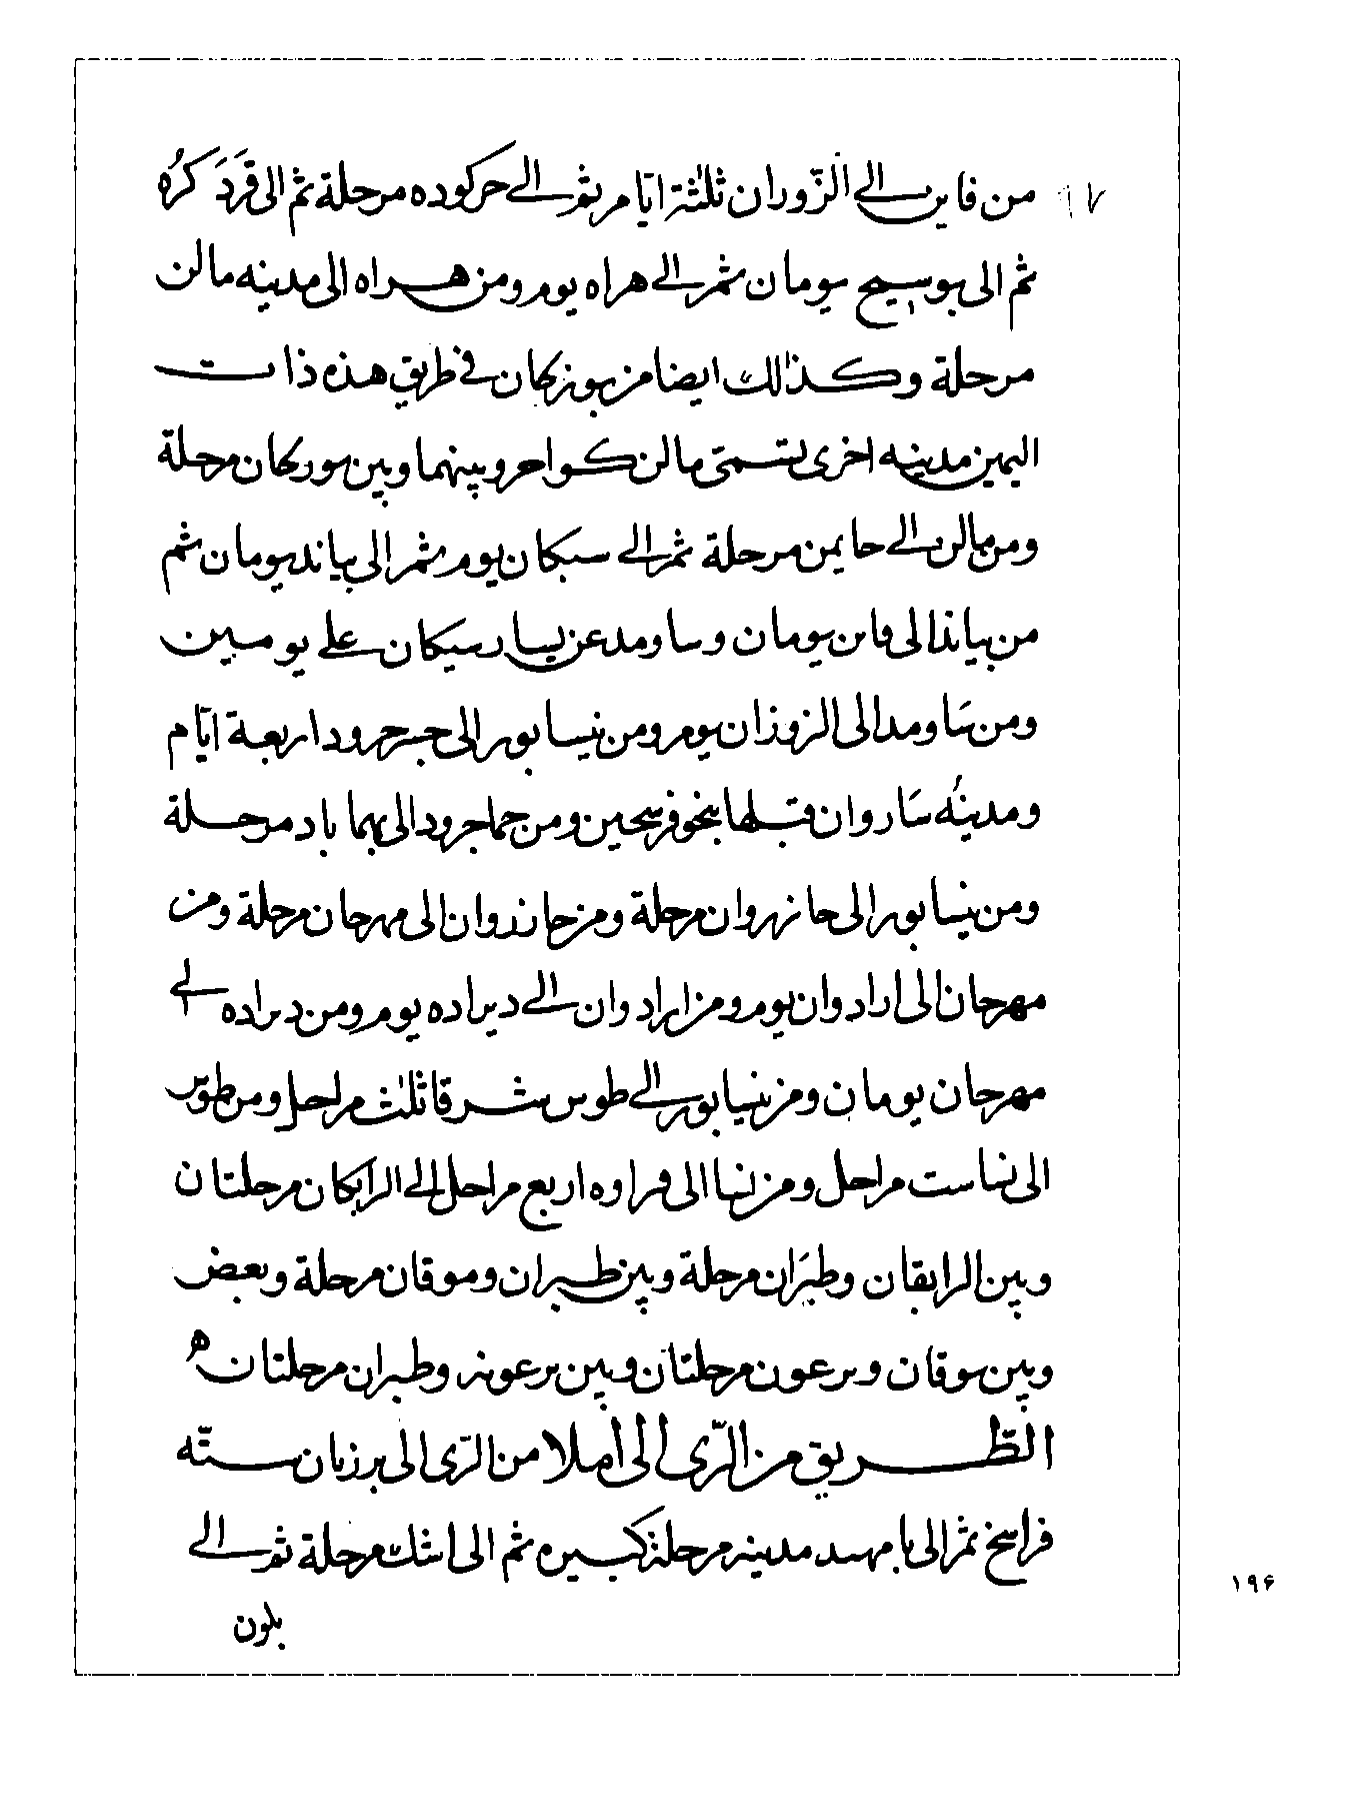 من فاين الى الزّوران ثلثة ايّام ثم الى حركوده مرحلة ثم الى قَردَ كرُه
ثم الى بوسيج يومان ثم الى هراه يوم ومن هراه الى مدينه مالن
مرحلة وكذالك ايضا من بوزكان فى طريق هذه ذات
اليمين مدينه اخرى تسمّى مالن كواحر وبينهما وبين بوركان مرحلة
ومن مالن الى حايمن مرحلة ثم الى سبكان يوم ثم الى بياند يومان ثم
من بياند الى قاين يومان وساومد عن يسار سيكان على يومين
ومن سَاومد الى الزوزان يوم ومن نيسابور الى جسرحرود اربعة ايّام
ومدينُه سَاروان قبلها بنحو فرسخين ومن جماجرود الى بهما باد مرحلة
ومن نيسابور الى حانهروان مرحلة ومن حاندوان الى مهرجان مرحلة ومن
مهرجان الى ارادوان يوم ومن ارادوان الى ديراده يوم ومن ديراده الى
مهرجان يومان ومن نيسابور الى طوس شرقا ثلث مراحل ومن طوس
الى نسا ست مراحل ومن نسا الى فراوه اربع مراحل الى الرابكان مرحلتان
وبين الرايقان وطبَران مرحلة وبين طبران وموقان مرحلة وبعض
وبين سوقان وبرعون مرحلتان وبين برعون وطبران مرحلتان ه
الطّريق من الرّى الى املا من الرّى الى برزيان ستّه
فراسخ ثم الى بامهند مدينه مرحلة كبيره ثم الى اشك مرحلة ثم الى
بلون
١٩۶